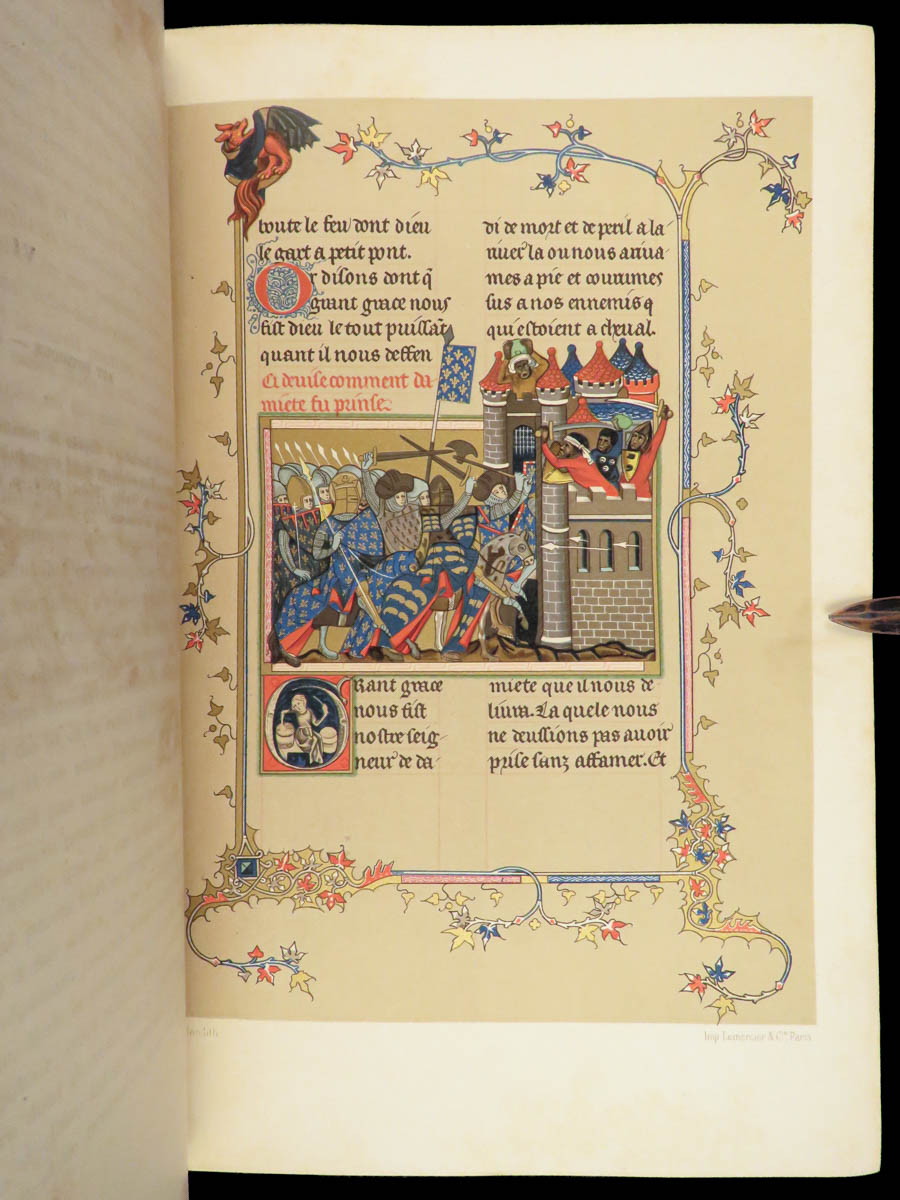 toute le feu dont dieu
le gart a petit pont.
Or disons dont q̄
grant grace nous
fist dieu le tout puissāt
quant il nous deffen
Ci deuise comment da
miete fu prinse
di de mort et de peril a la
riuer la ou nous arriua-
mes a pie et courumes
sus a nos ennemis q
qui estoient a cheual.
GRant grace
nous fist
nostre seig-
neur de da-
miete que il nous de
liura. La quele nous
ne deussions pas auoir
prise sanz affamer. Et
Imp. Lemercier & Cie Paris